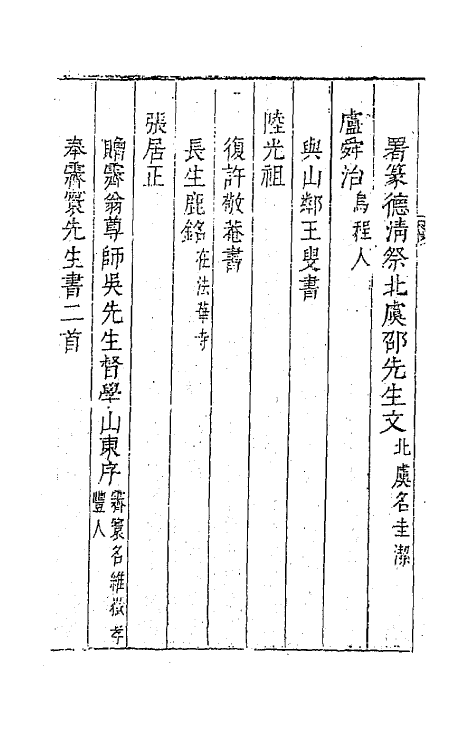 署篆德清祭北虞邵先生文北虞名圭潔
盧舜治烏程人
與山鄰王叟書
陸光祖
復許敬菴書
長生鹿銘在法華寺
張居正
贈霽翁尊師吳先生督學山東序霽寰名維嶽孝豐人
奉霽寰先生書二首